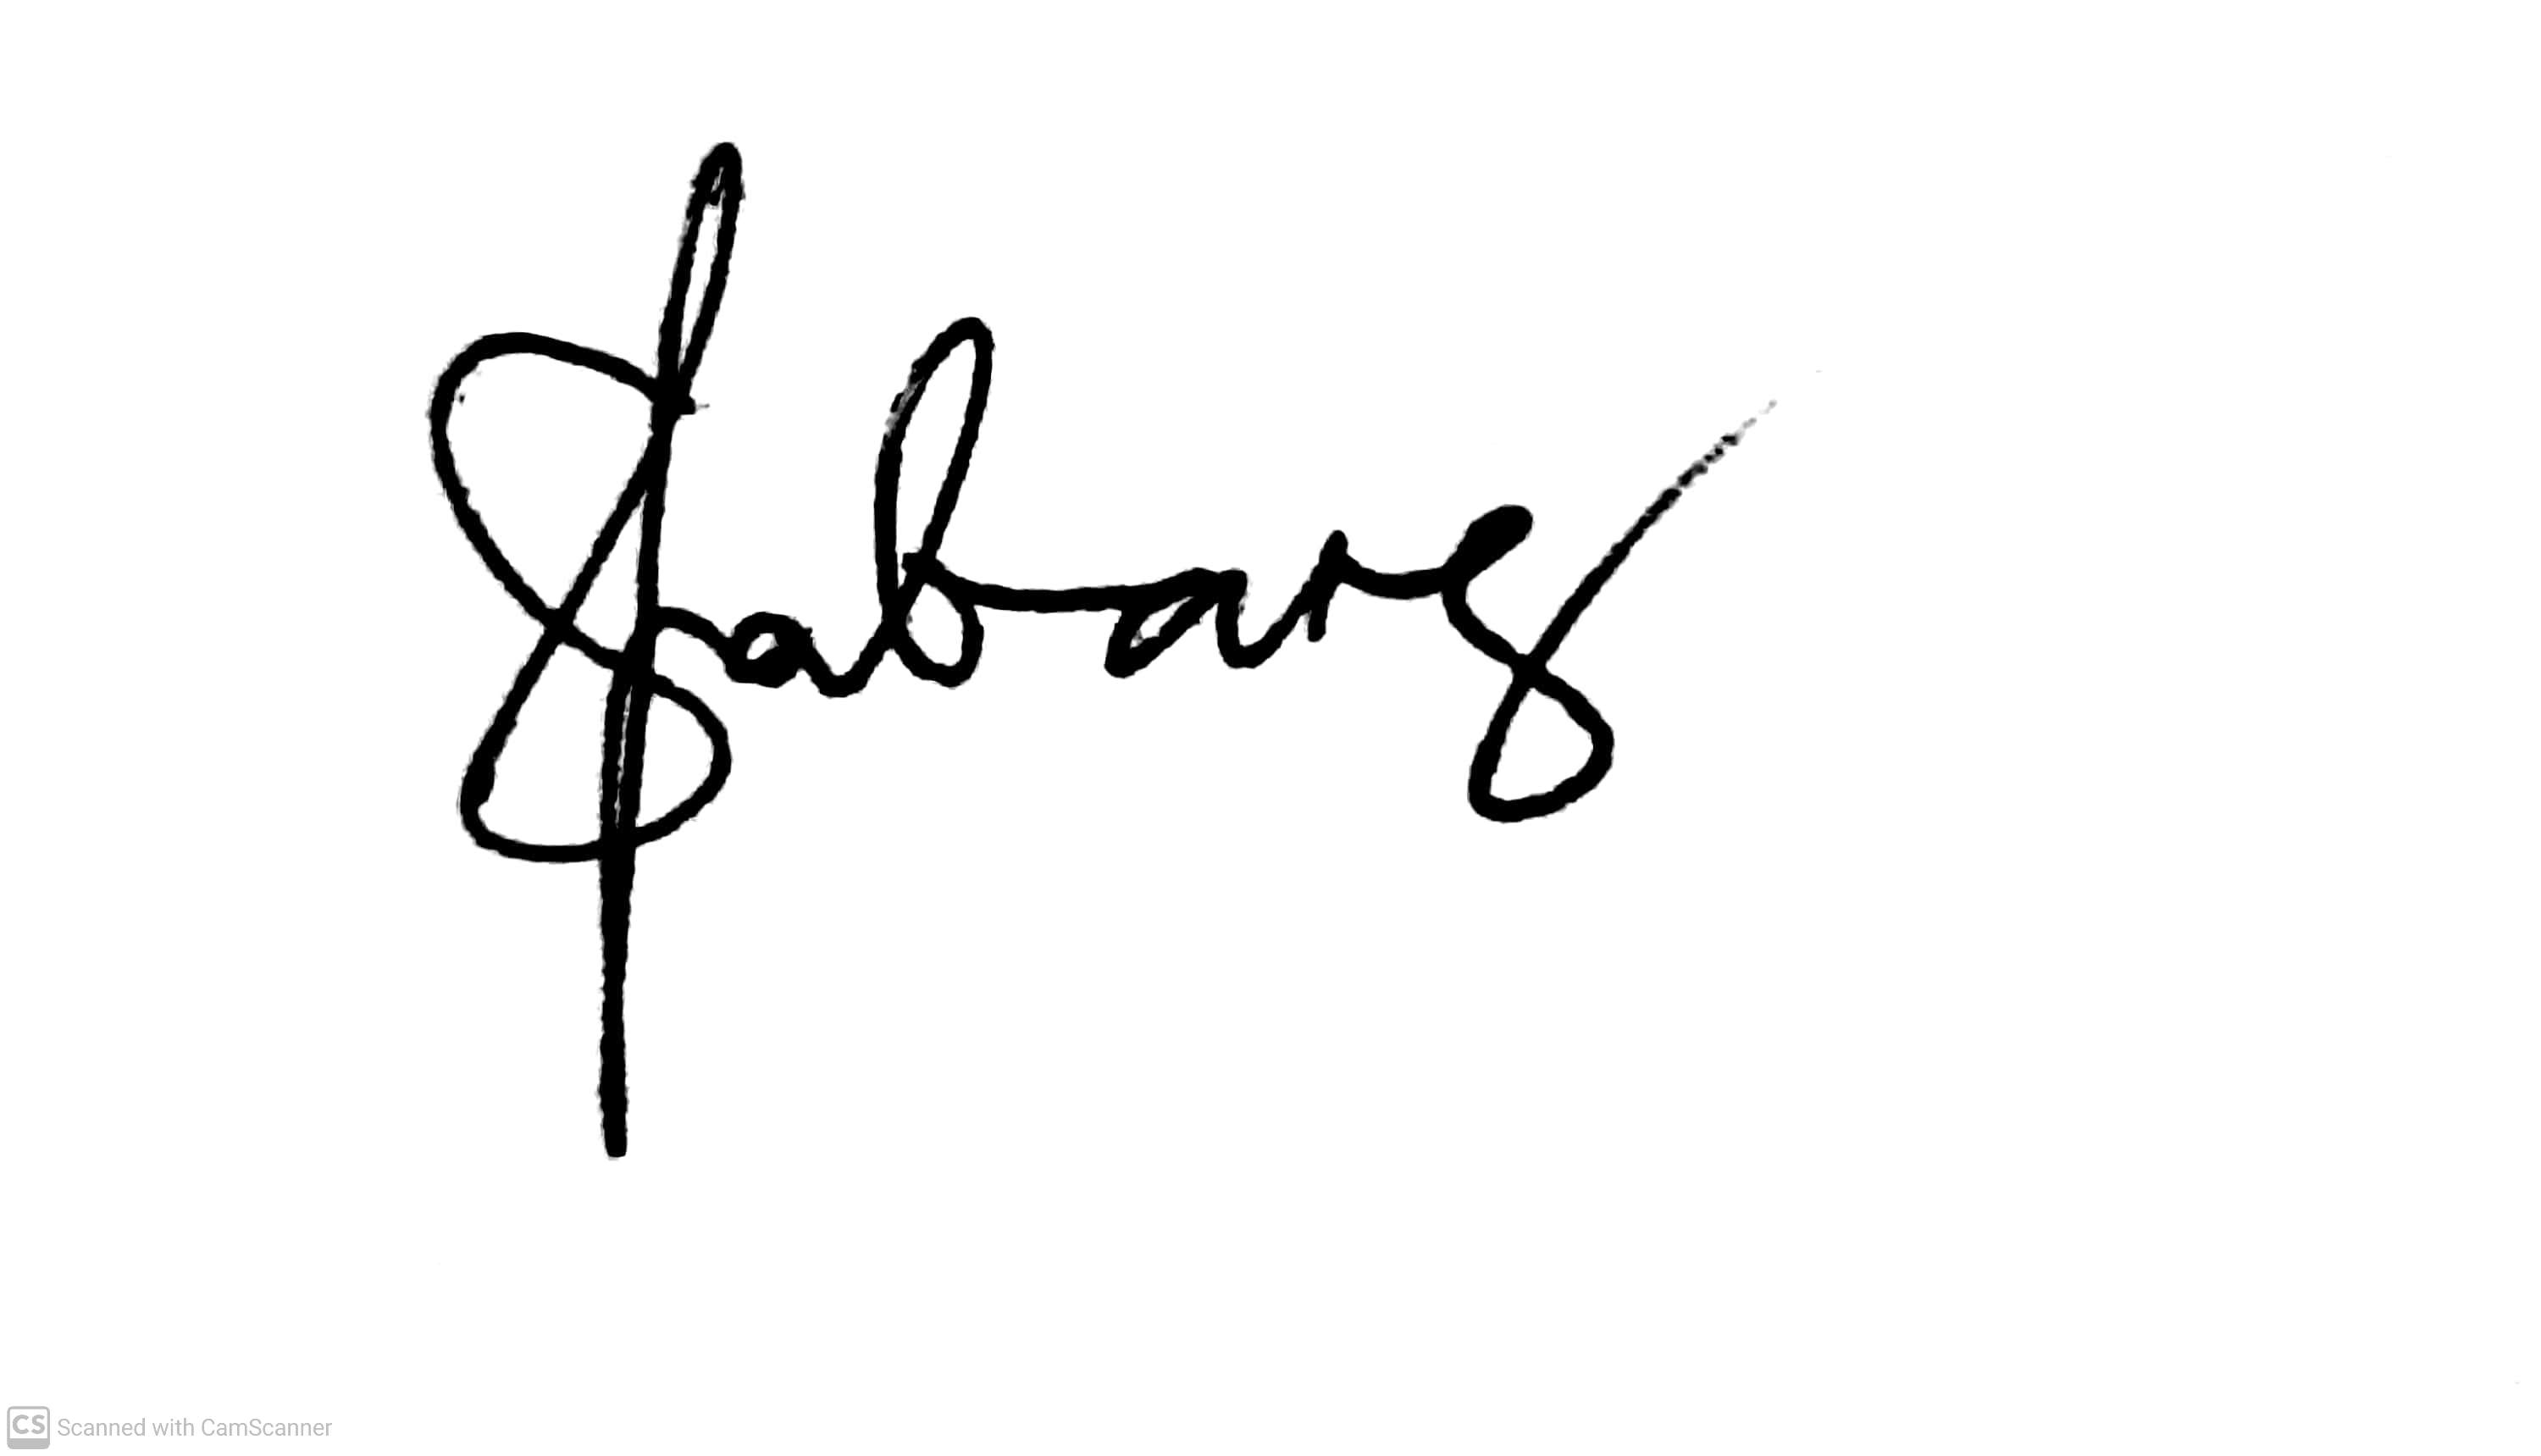 Sabarg
CS Scanned with CamScanner